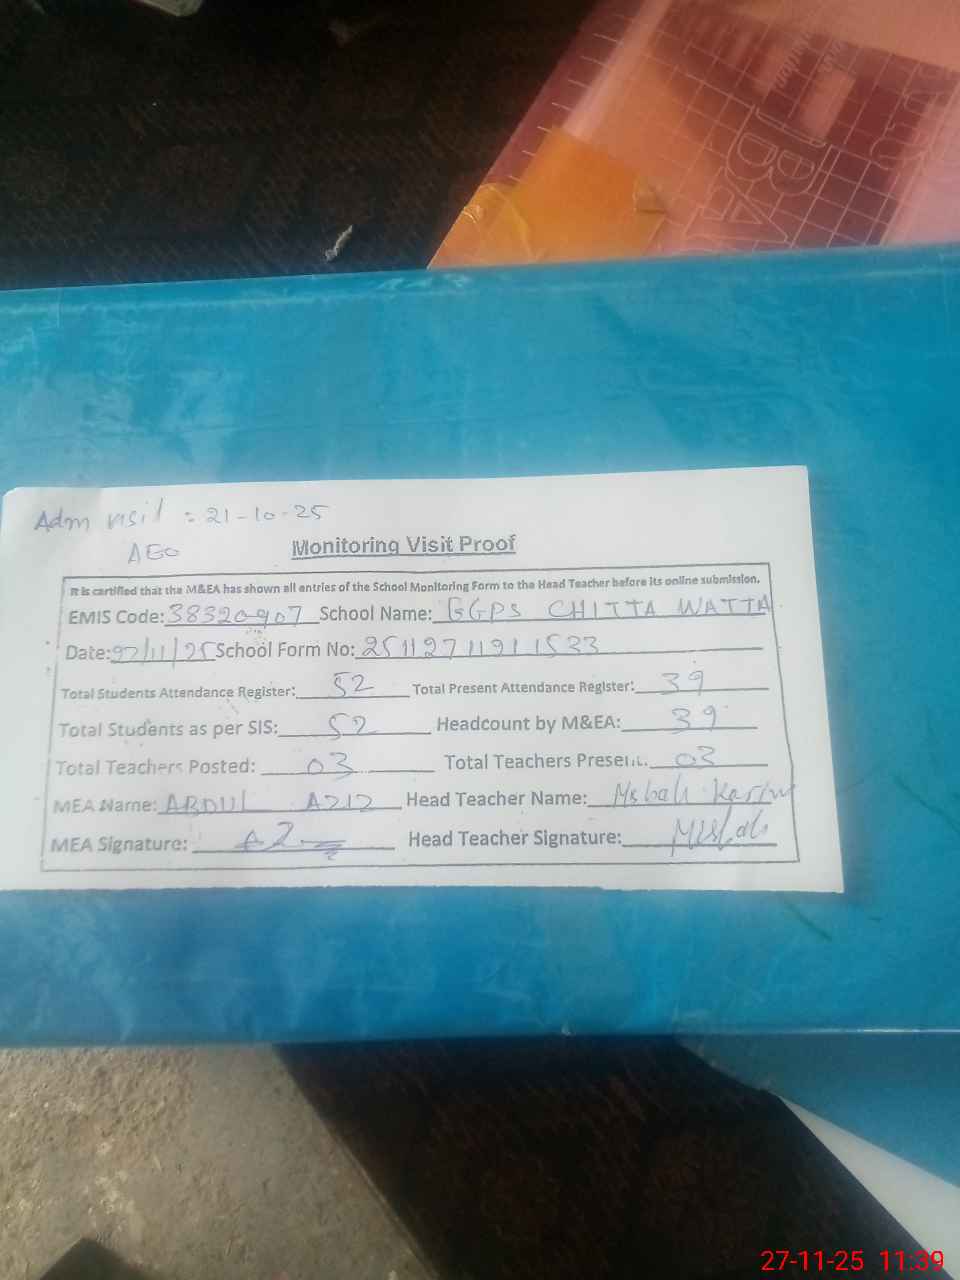 Adm visit : 21-10-25
AEO
Monitoring Visit Proof
It is certified that the M&EA has shown all entries of the School Monitoring Form to the Head Teacher before its online submission.
EMIS Code: 38320907 School Name: GGPS CHITTA WATTA
Date: 27/11/25 School Form No: 25112711911533
Total Students Attendance Register: 52 Total Present Attendance Register: 39
Total Students as per SIS: 52 Headcount by M&EA: 39
Total Teachers Posted: 03 Total Teachers Present: 03
MEA Name: ABDUL AZIZ Head Teacher Name: Misbah Karim
MEA Signature: AZ Head Teacher Signature: Misbah
27-11-25 11:39